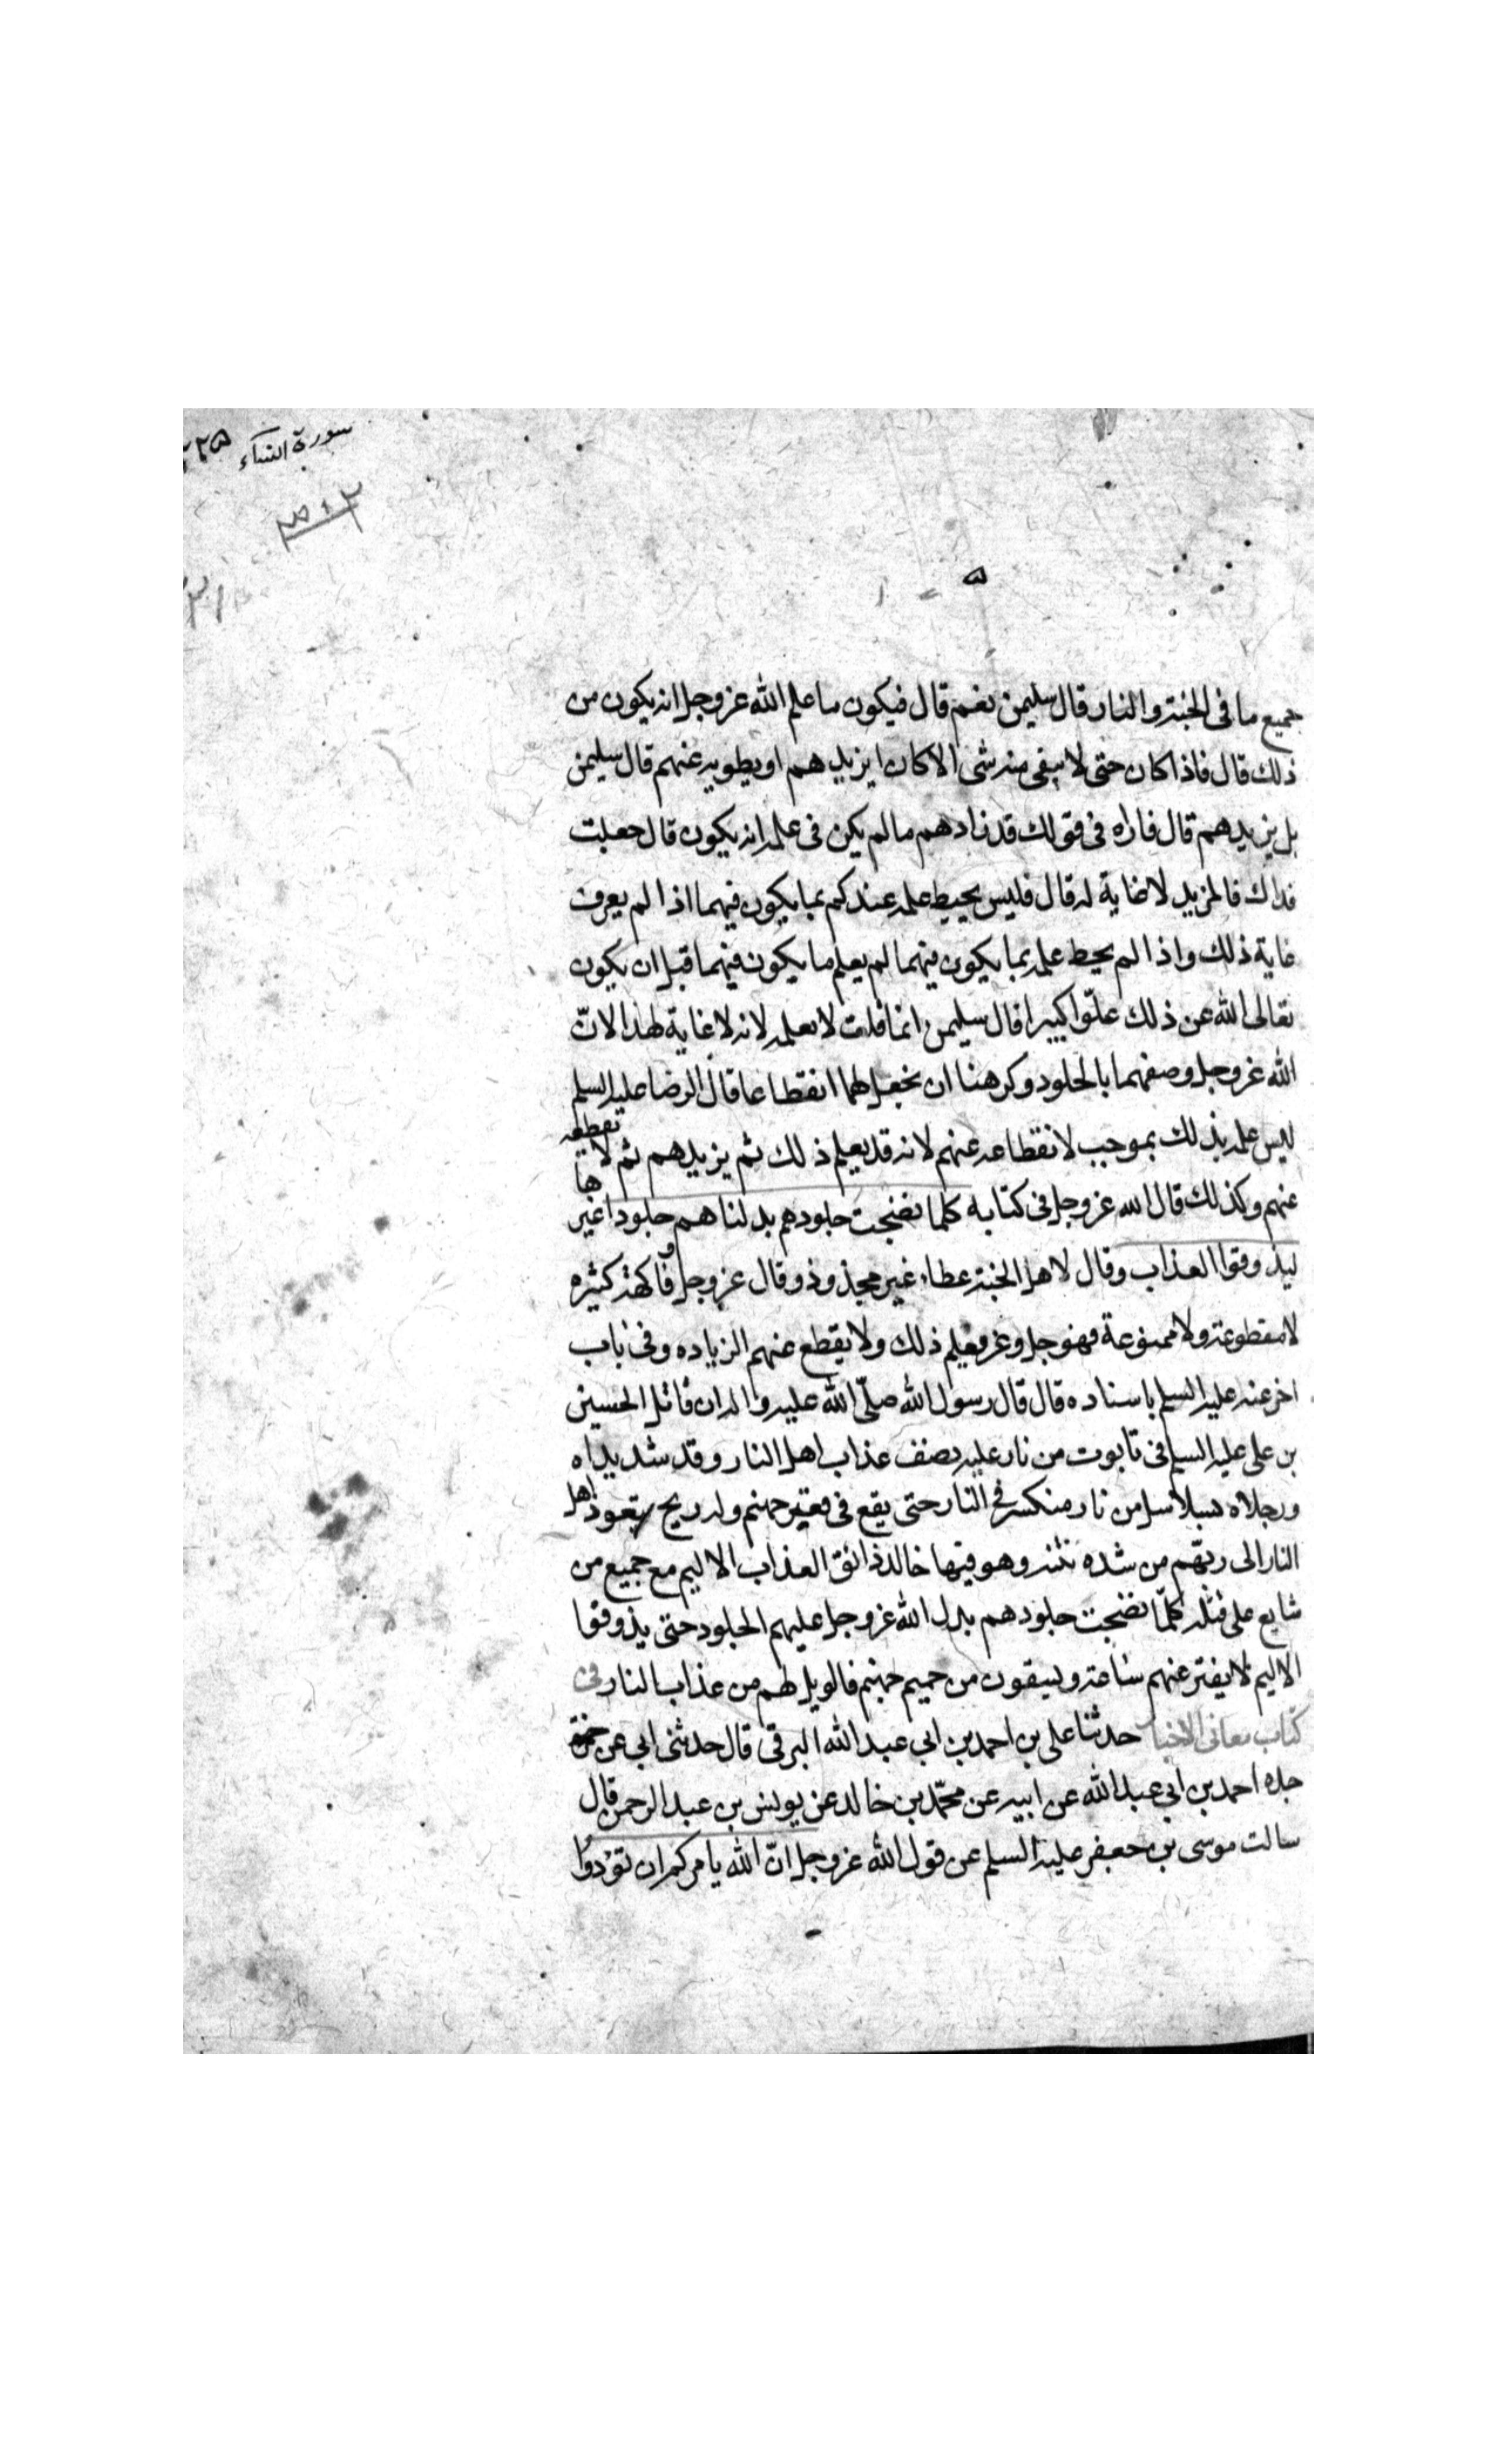 سورة النساء ٢٢٥
جميع ما فى الجنة والنار قال سليمن نعم قال فيكون ما علم الله عز وجل انه يكون من
ذلك قال فاذا كان حتى لا يبقى منه شى الا كان ايزيدهم او يطويه عنهم قال سليمن
بل يزيدهم قال فاراه فى قولك قد زادهم ما لم يكن فى علمه انه يكون قال جعلت
فداك فالمزيد لا غاية له قال فليس يحيط علمه عندكم بما يكون فيهما اذا لم يعرف
غاية ذلك واذا لم يحط علمه بما يكون فيهما لم يعلم ما يكون فيهما قبل ان يكون
تعالى الله عن ذلك علوّا كبيرا قال سليمن انما قلت لا يعلمه لانه لا غاية لهذا لانّ
الله عز وجل وصفهما بالخلود وكرهنا ان نجعل لهما انقطاعا قال الرضا عليه السلم
ليس علمه بذلك بموجب لانقطاعه عنهم لانه قد يعلم ذلك ثم يزيدهم ثم لا يقطعه
عنهم وكذلك قال الله عز وجل فى كتابه كلما نضجت جلودهم بدلناهم جلودا غيرها
ليذوقوا العذاب وقال لاهل الجنة عطاء غير مجذوذ وقال عز وجل وفاكهة كثيره
لا مقطوعة ولا ممنوعة فهو جل وعز يعلم ذلك ولا يقطع عنهم الزياده وفى باب
اخر عنه عليه السلم باسناده قال قال رسول الله صلّى الله عليه واله ان قاتل الحسين
بن على عليه السلم فى تابوت من نار عليه نصف عذاب اهل النار وقد شد يداه
ورجلاه بسلاسل من نار منكس فى النار حتى يقع فى قعر جهنم وله ريح يتعوذ اهل
النار الى ربّهم من شده نتنه وهو فيها خالد ذائق العذاب الاليم مع جميع من
شايع على قتله كلّما نضجت جلودهم بدل الله عز وجل عليهم الجلود حتى يذوقوا
الاليم لا يفتر عنهم ساعة ويسقون من حميم جهنم فالويل لهم من عذاب النار فى
كتاب معانى الاخبار حدثنا على بن احمد بن ابى عبد الله البرقى قال حدثنى ابى عن
جده احمد بن ابى عبد الله عن ابيه عن محمّد بن خالد عن يونس بن عبد الرحمن قال
سالت موسى بن جعفر عليه السلم عن قول الله عز وجل انّ الله يامركم ان تؤدوا